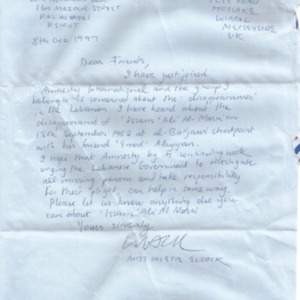 BEIRUT
8th Dec 1997
WIRRAL
MERSEYSIDE
UK
Dear Friends,
I have just joined
Amnesty International and the group I
belong to is concerned about the 'disappearances'
in the Lebanon. I have heard about the
disappearance of 'Issam Ali Al Masri' on
18th September 1982 at al-Barjawi checkpoint
with his friend 'Emad'
I hope that Amnesty by it continuing work
urging the Lebanese Government to investigate
all missing persons and take responsibility
for their plight, can help in some way.
Please let us know anything else you
can about 'Issam Ali Al Masri
Yours sincerely
MISS